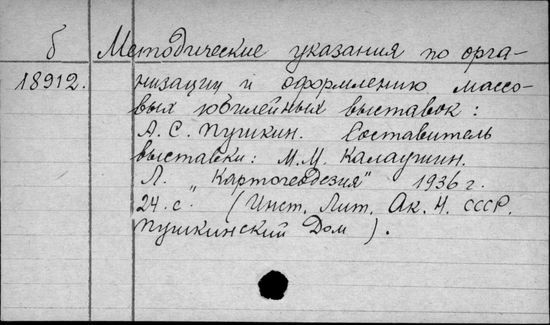 б Методические указания по орга-
18912. низации и оформлению массо-
вых юбилейных выставок:
А. С. Пушкин. Составитель
выставки: М. М. Калаушин.
Л. "Картогеодезия" 1936 г.
24 с. (Инст. Лит. Ак. Н. СССР.
Пушкинский Дом).